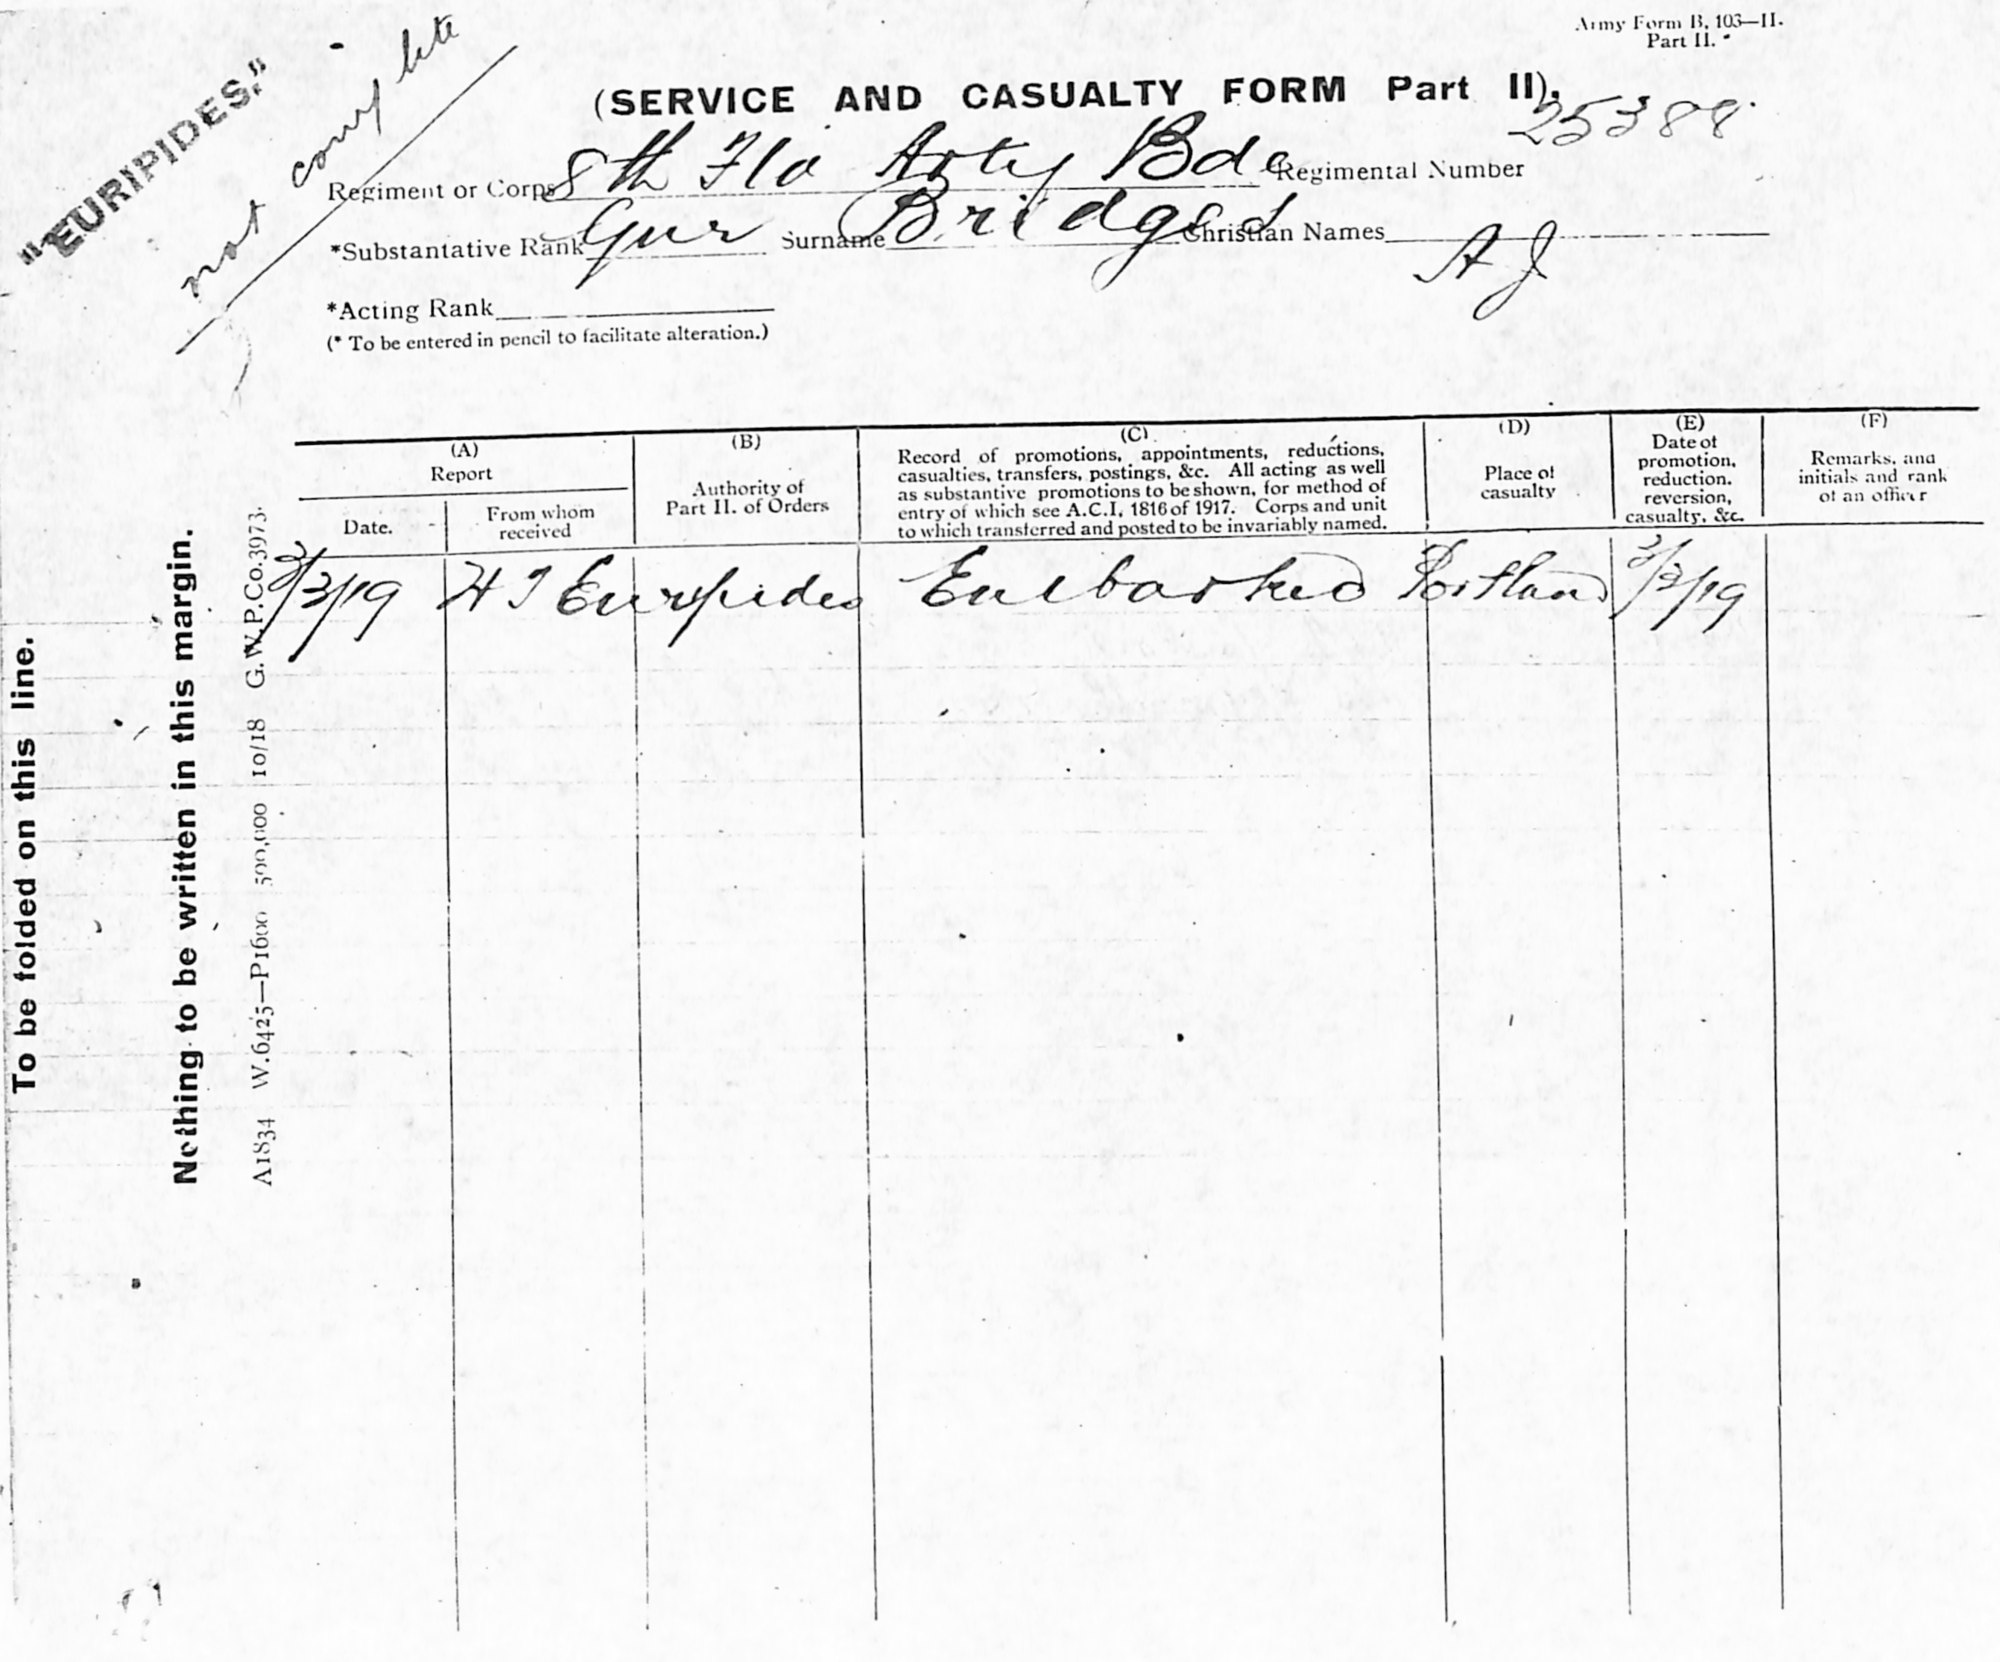 Army Form B. 103—II.
Part II.
"EURIPIDES."
not complete
(SERVICE AND CASUALTY FORM Part II).
25388
Regiment or Corps 8th Fld Arty Bde Regimental Number
*Substantative Rank Gnr Surname Bridges Christian Names A J
*Acting Rank
(* To be entered in pencil to facilitate alteration.)
(A)
Report
Date.
From whom
received
(B)
Authority of
Part II. of Orders
(C)
Record of promotions, appointments, reductions,
casualties, transfers, postings, &c. All acting as well
as substantive promotions to be shown, for method of
entry of which see A.C.I. 1816 of 1917. Corps and unit
to which transferred and posted to be invariably named.
(D)
Place of
casualty
(E)
Date of
promotion,
reduction,
reversion,
casualty, &c.
(F)
Remarks, and
initials and rank
of an officer
3/3/19 H T Euripides Embarked Portland 3/3/19
To be folded on this line.
Nothing to be written in this margin.
A1834 W.6425—P1600 500,000 10/18 G.W.P.Co.3973.